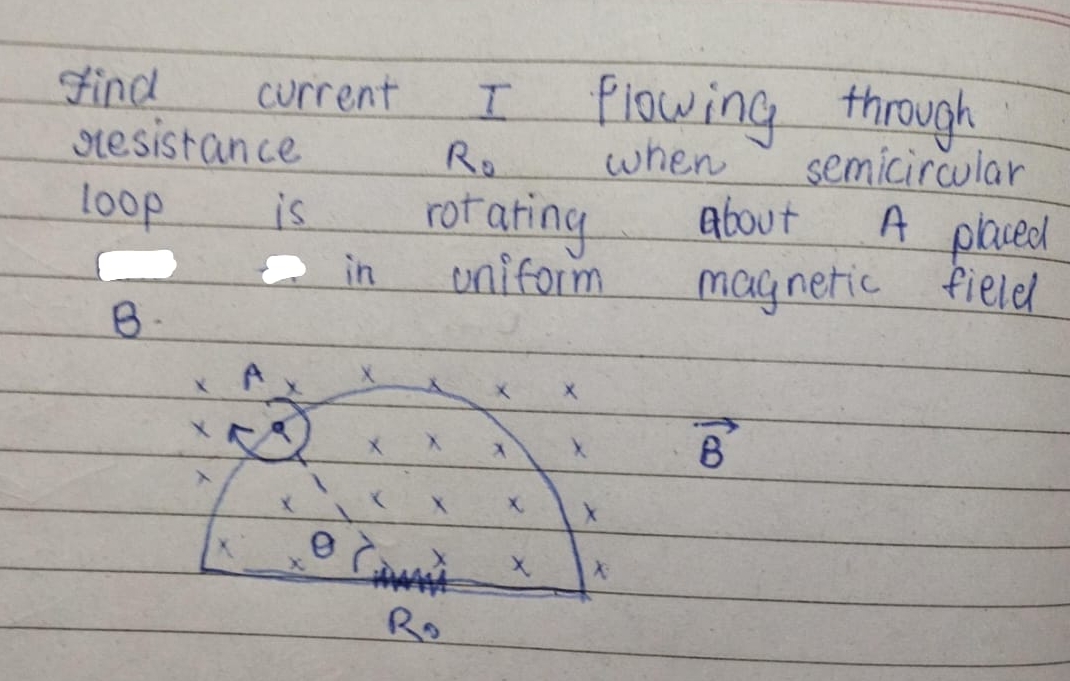 Find current I flowing through
resistance R₀ when semicircular
loop is rotating about A placed
in uniform magnetic field
B.
A
B
θ
R₀